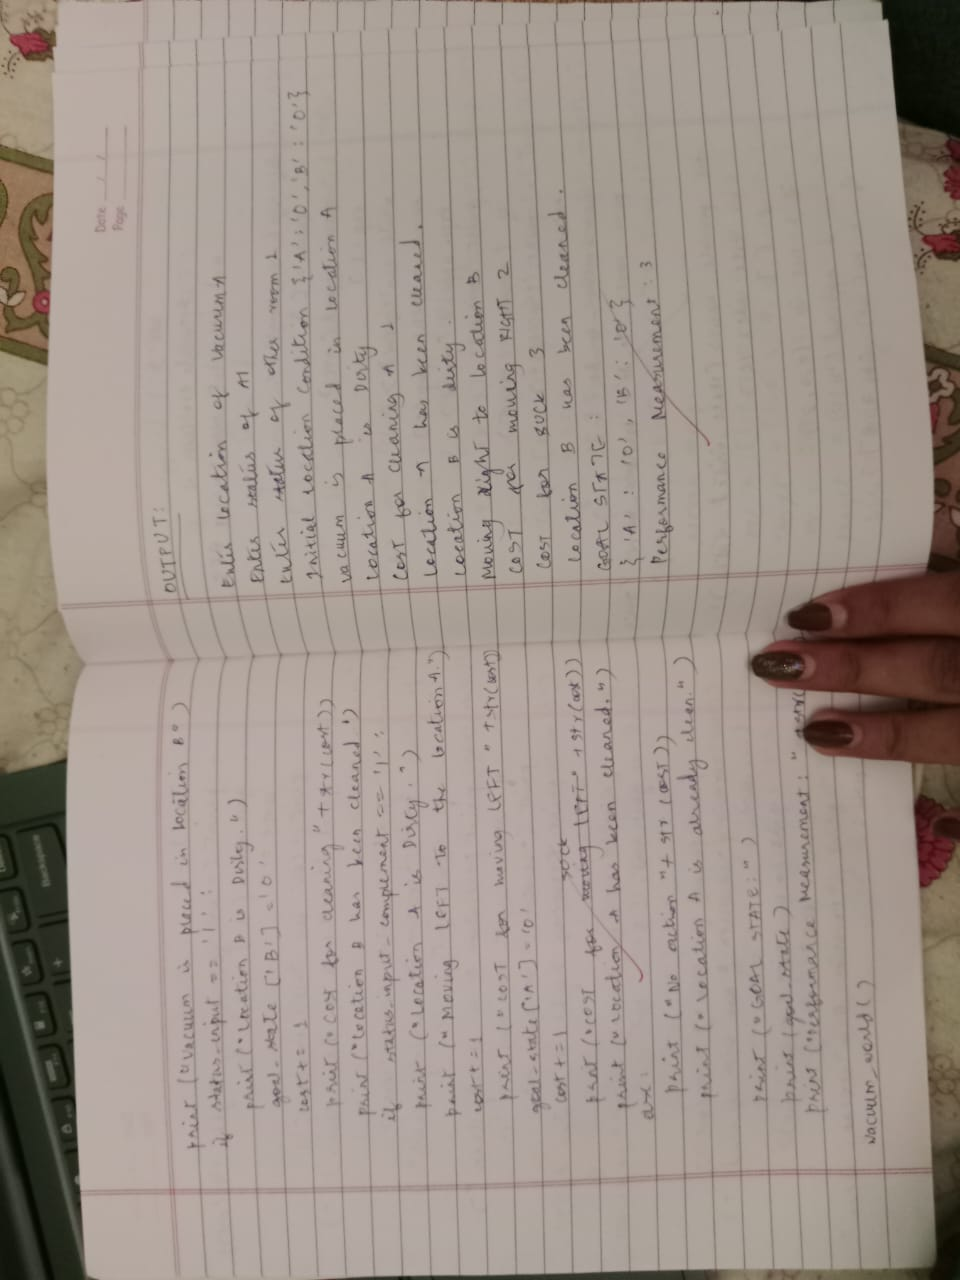 print ("Vacuum is placed in location B")
if status-input == '1' :
print ("Location B is Dirty.")
goal-state ['B'] = '0'
cost += 1
print ("Cost for cleaning" + str(cost))
print ("Location B has been cleaned.")
if status-input-complement == '1' :
print ("Location A is Dirty.")
print ("Moving LEFT to the location A.")
cost += 1
print ("COST for moving LEFT" + str(cost))
goal-state['A'] = '0'
cost += 1
print ("COST for SUCK" + str(cost))
print ("Location A has been cleaned.")
print ("No action" + str (cost))
print ("Location A is already clean.")
print ("GOAL STATE:")
print (goal-state)
print ("Performance Measurement:" + str(
vacuum_world()
Date / /
Page
OUTPUT:
Enter location of vacuum A
Enter status of A1
Enter status of other room 1
Initial location condition {'A':'0','B':'0'}
Vacuum is placed in location A
Location A is Dirty
Cost for cleaning A 1
Location A has been cleaned.
Location B is dirty.
Moving right to location B
COST for moving RIGHT 2
COST for SUCK 3
Location B has been cleaned.
GOAL STATE:
{'A': '0', 'B': '0'}
Performance Measurement: 3